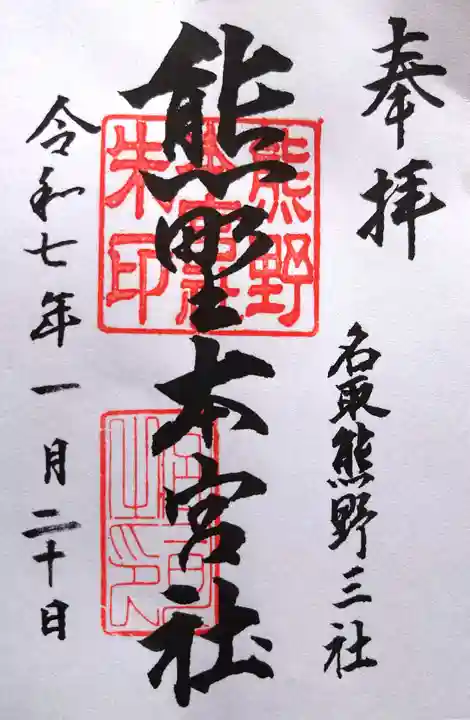 奉拝
名取熊野三社
熊野本宮社
熊野本宮社朱印
令和七年一月二十日